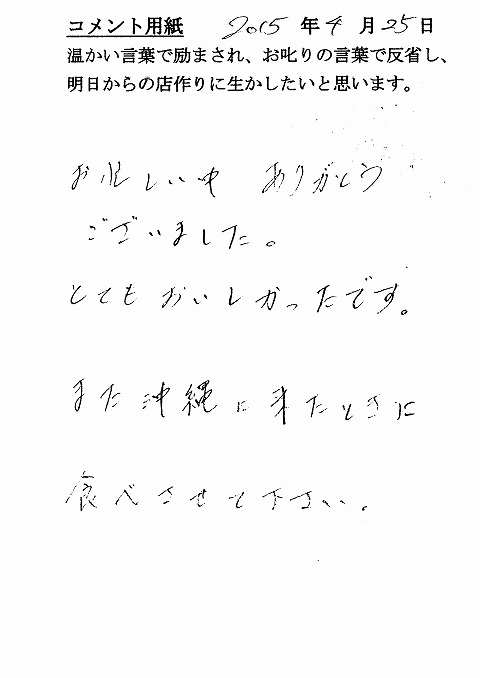 コメント用紙 2015年4月25日
温かい言葉で励まされ、お叱りの言葉で反省し、
明日からの店作りに生かしたいと思います。
お忙しい中 ありがとう
ございました。
とてもおいしかったです。
また沖縄に来たときに
食べさせて下さい。